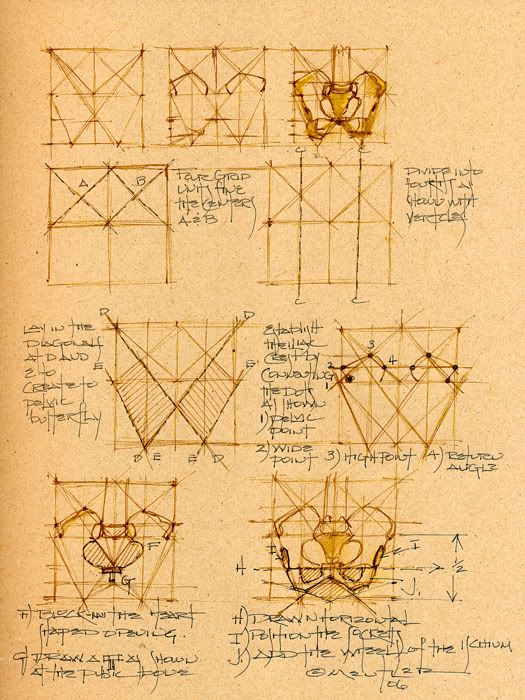 C C
A B
FOUR GRID
UNITS FIND
THE CENTERS
A & B
DIVIDE INTO
FOURTHS AS
SHOWN WITH
VERTICLES
C C
D D
LAY IN THE
DIAGONALS
AT D AND
E TO
CREATE TO
PELVIC
BUTTERFLY
E E
D E E D
ESTABLISH
THE ILIAC
CREST BY
CONNECTING
THE DOTS
AS SHOWN
1) PELVIC
POINT
2) WIDE
POINT
3) HIGH POINT
4) RETURN
ANGLE
3
2 4
1
F
G
I I
H
1/2
J
F) BLOCK-IN THE HEART
SHAPED OPENING.
G) DRAW AS SHOWN
AT THE PUBIC BONE
H) DRAW HORIZONTAL
I) POSITION THE SOCKETS
J) ADD THE WHEELS OF THE ISCHIUM
06